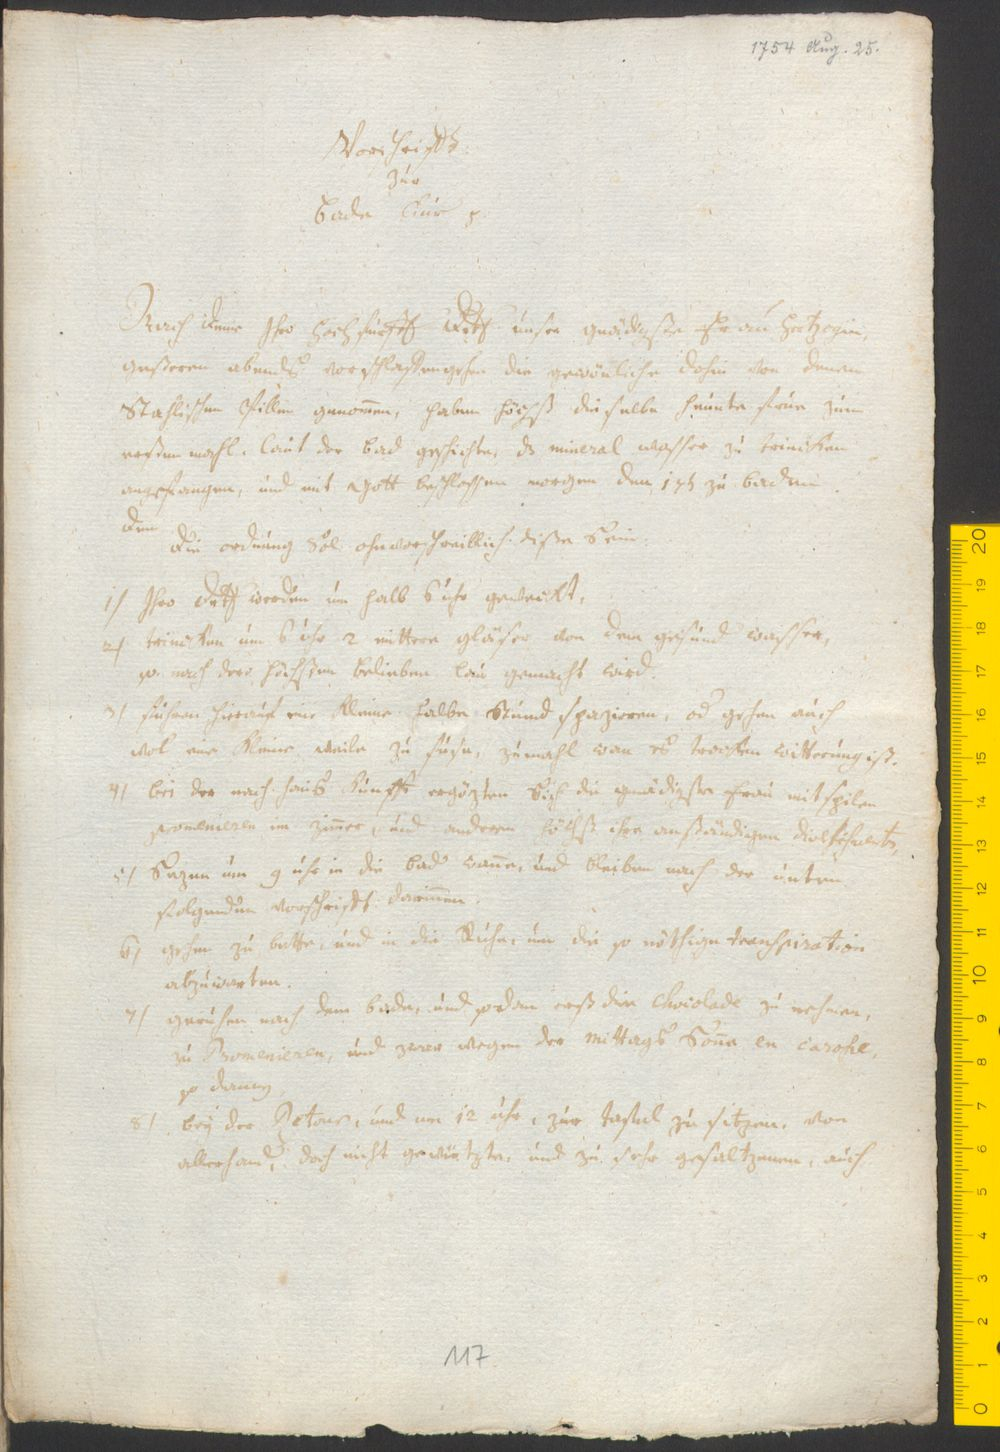 1754 Aug. 25.
Vorschrifft
Zur
Bade Cur p.
Nach deme Ihro Hochfürstl. Dchl. unsre gnädigste Frau Hertzogin,
gesteren abends vor schlaffengehen die gewönliche dosin von denen
Stahlischen Pillen genommen, haben höchst dieselbe heunte früe zum
ersten mahl, laut der bad geschichte, ds mineral wasser zu trincken
angefangen, und mit Gott beschlossen morgen den zu baden.
Die ordnung sol ohnvorschreiblich diese sein.
1) Ihro Dchl werden um halb 6 uhr geweckt,
2) trincken um 6 uhr 2 mittere gläser von dem gesund wasser,
so nach dero höchstem belieben lau gemacht wird.
3) führen hierauf eine kleine halbe Stund spazieren, od gehen auch
wol eine kleine weile zu fuse, zumahl wan es trocken witterung ist.
4) bei der nach haus kunfft ergözen Sich die gnädigste Frau mit spilen
promenieren im zimmer, und anderen höchst ihro anständigen
5) Sizen um 9 uhr in die bad wanne, und bleiben nach der unten
folgenden vorschrifft darinnen.
6) gehen zu bette, und in die Ruhe, um die so nöthige transpiration
abzuwarten.
7) geruhen nach dem bade, und sodan erst die Chocolade zu nehmen,
zu Promenieren, und zwar wegen der mittags Sonne en carosse,
so dann
8) bey der Retour, und um 12 uhr, zur taffel zu sitzen, von
allerhand, doch nicht gewürtzte, und zu sehr gesaltzenen, auch
117